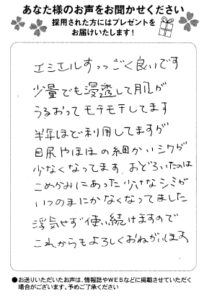 あなた様のお声をお聞かせください
採用された方にはプレゼントを
お届けいたします！
エシエルすっっごく良いです
少量でも浸透して肌が
うるおってモチモチしてます
半年ほど利用してますが
目尻やほほの細かいシワが
少なくなってます おどろいたのは
こめかみにあった少さなシミが
いつのまにかなくなってました
浮気せず使い続けますので
これからもよろしくおねがいします
●お送りいただいたお声は、情報誌やWEBなどに掲載させていただく
場合がございます。予めご了承ください